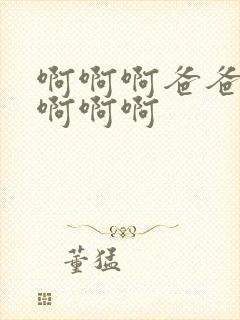 啊啊啊爸爸
啊啊啊
董猛